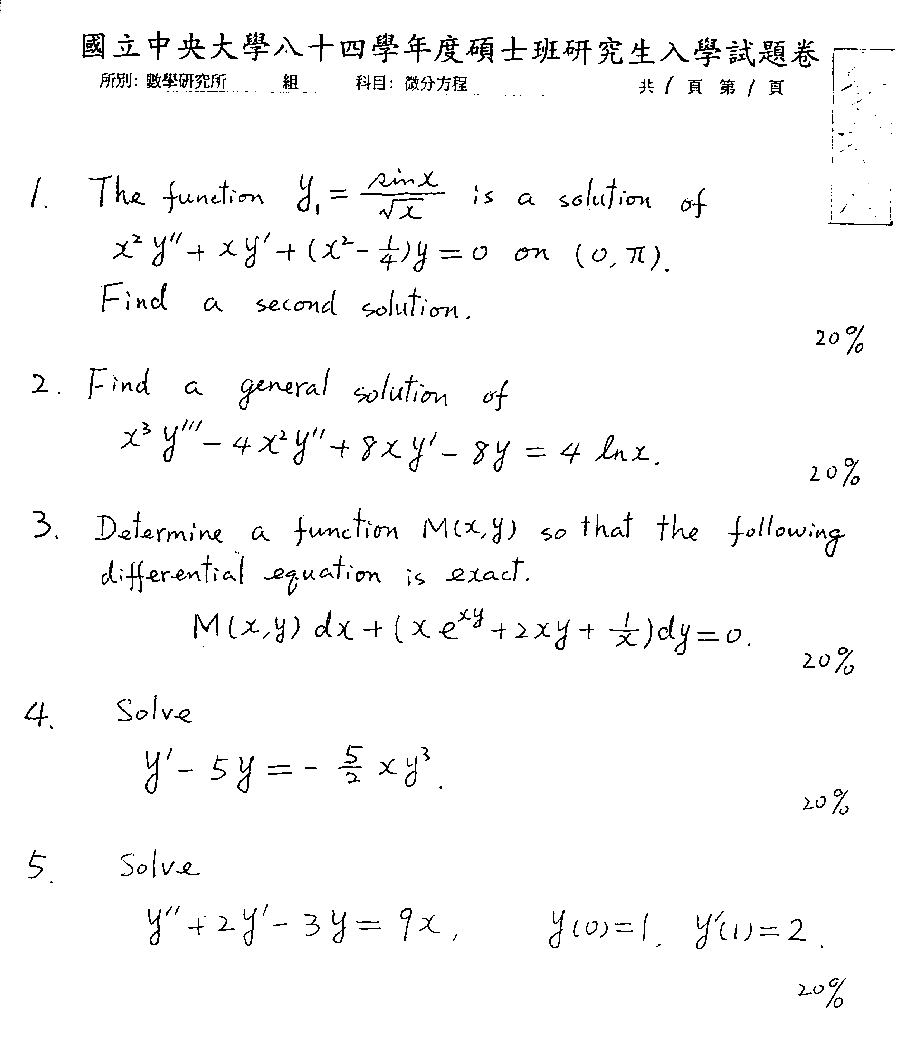 國立中央大學八十四學年度碩士班研究生入學試題卷
所別: 數學研究所 組 科目: 微分方程 共 1 頁 第 1 頁
1. The function y₁ = sinx/√x is a solution of
x²y'' + xy' + (x² - 1/4)y = 0 on (0, π).
Find a second solution.
20%
2. Find a general solution of
x³y''' - 4x²y'' + 8xy' - 8y = 4 lnx.
20%
3. Determine a function M(x,y) so that the following
differential equation is exact.
M(x,y) dx + (xe^{xy} + 2xy + 1/x)dy = 0.
20%
4. Solve
y' - 5y = - 5/2 xy³.
20%
5. Solve
y'' + 2y' - 3y = 9x, y(0)=1, y'(1)=2.
20%